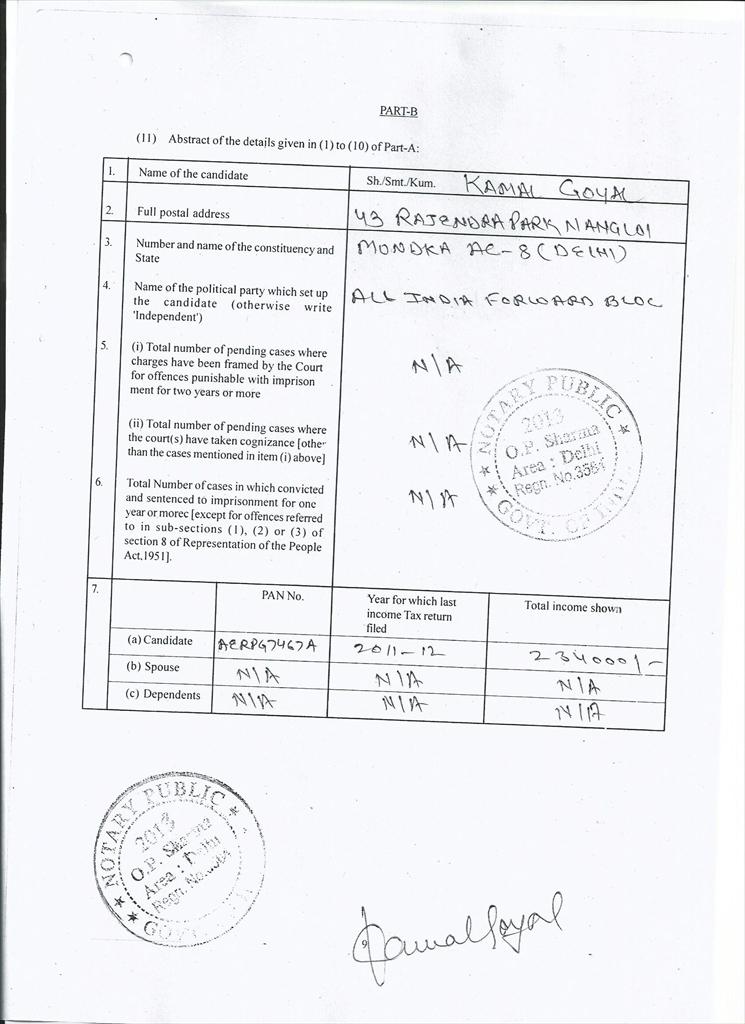 PART-B
(11) Abstract of the details given in (1) to (10) of Part-A:
1. Name of the candidate Sh./Smt./Kum. KAMAL GOYAL
2. Full postal address 43 RAJENDRA PARK NANGLOI
3. Number and name of the constituency and MONDKA AC-8 (DELHI)
State
4. Name of the political party which set up
the candidate (otherwise write ALL INDIA FORWARD BLOC
'Independent')
5. (i) Total number of pending cases where
charges have been framed by the Court N/A
for offences punishable with imprison
ment for two years or more
(ii) Total number of pending cases where
the court(s) have taken cognizance [other N/A
than the cases mentioned in item (i) above]
6. Total Number of cases in which convicted
and sentenced to imprisonment for one N/A
year or morec [except for offences referred
to in sub-sections (1), (2) or (3) of
section 8 of Representation of the People
Act,1951].
NOTARY PUBLIC
2013
O.P. Sharma
Area : Delhi
Regn. No.3584
GOVT. OF
7. PAN No. Year for which last Total income shown
income Tax return
filed
(a) Candidate AERPG7467A 2011-12 234000/-
(b) Spouse N/A N/A N/A
(c) Dependents N/A N/A N/A
NOTARY PUBLIC
2013
O.P. Sharma
Area : Delhi
Regn. No.3584
GOVT.
Kamal Goyal